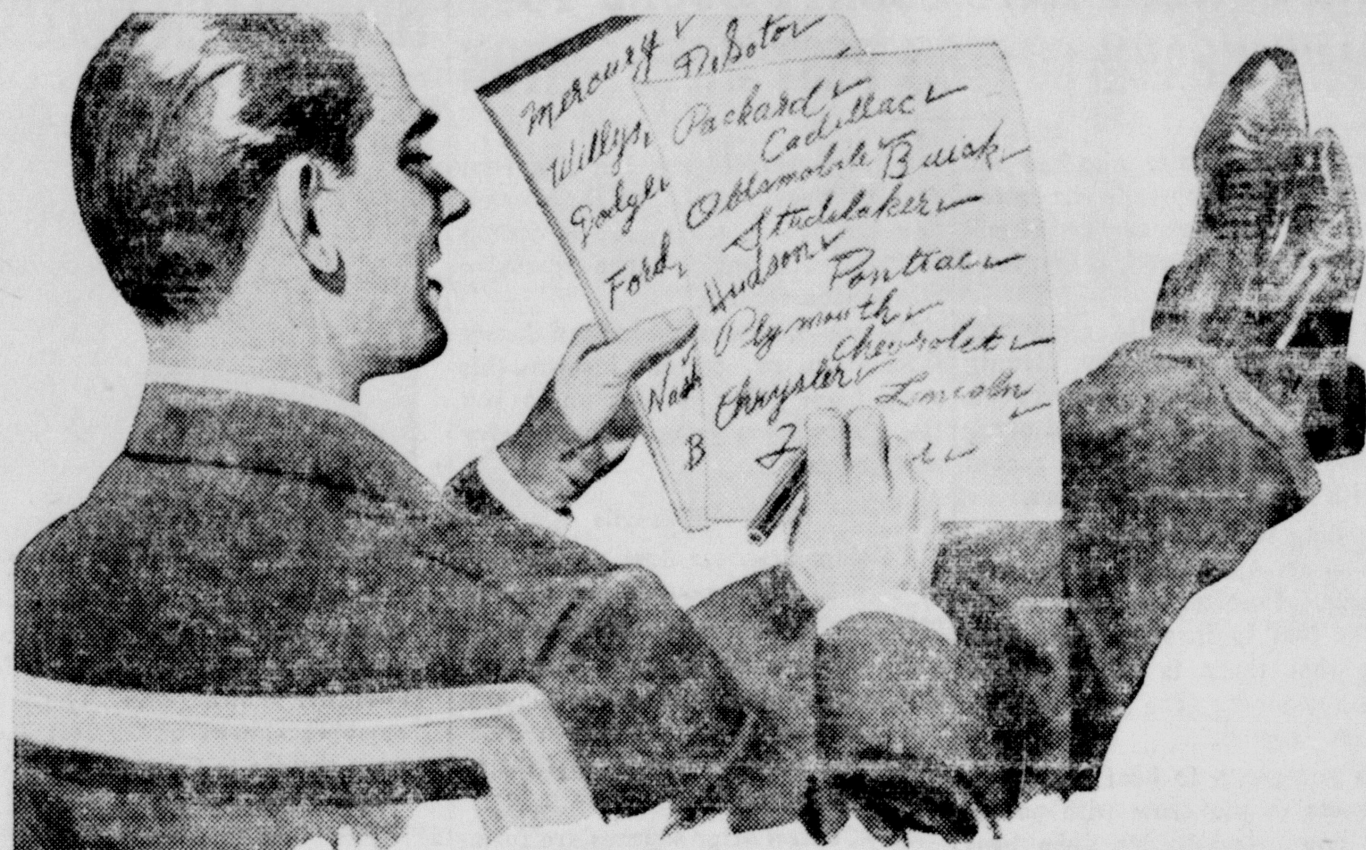 Mercury
DeSoto
Willys
Dodge
Ford
Nash
B
Packard
Cadillac
Oldsmobile Buick
Studebaker
Hudson
Pontiac
Plymouth
Chevrolet
Chrysler
Lincoln